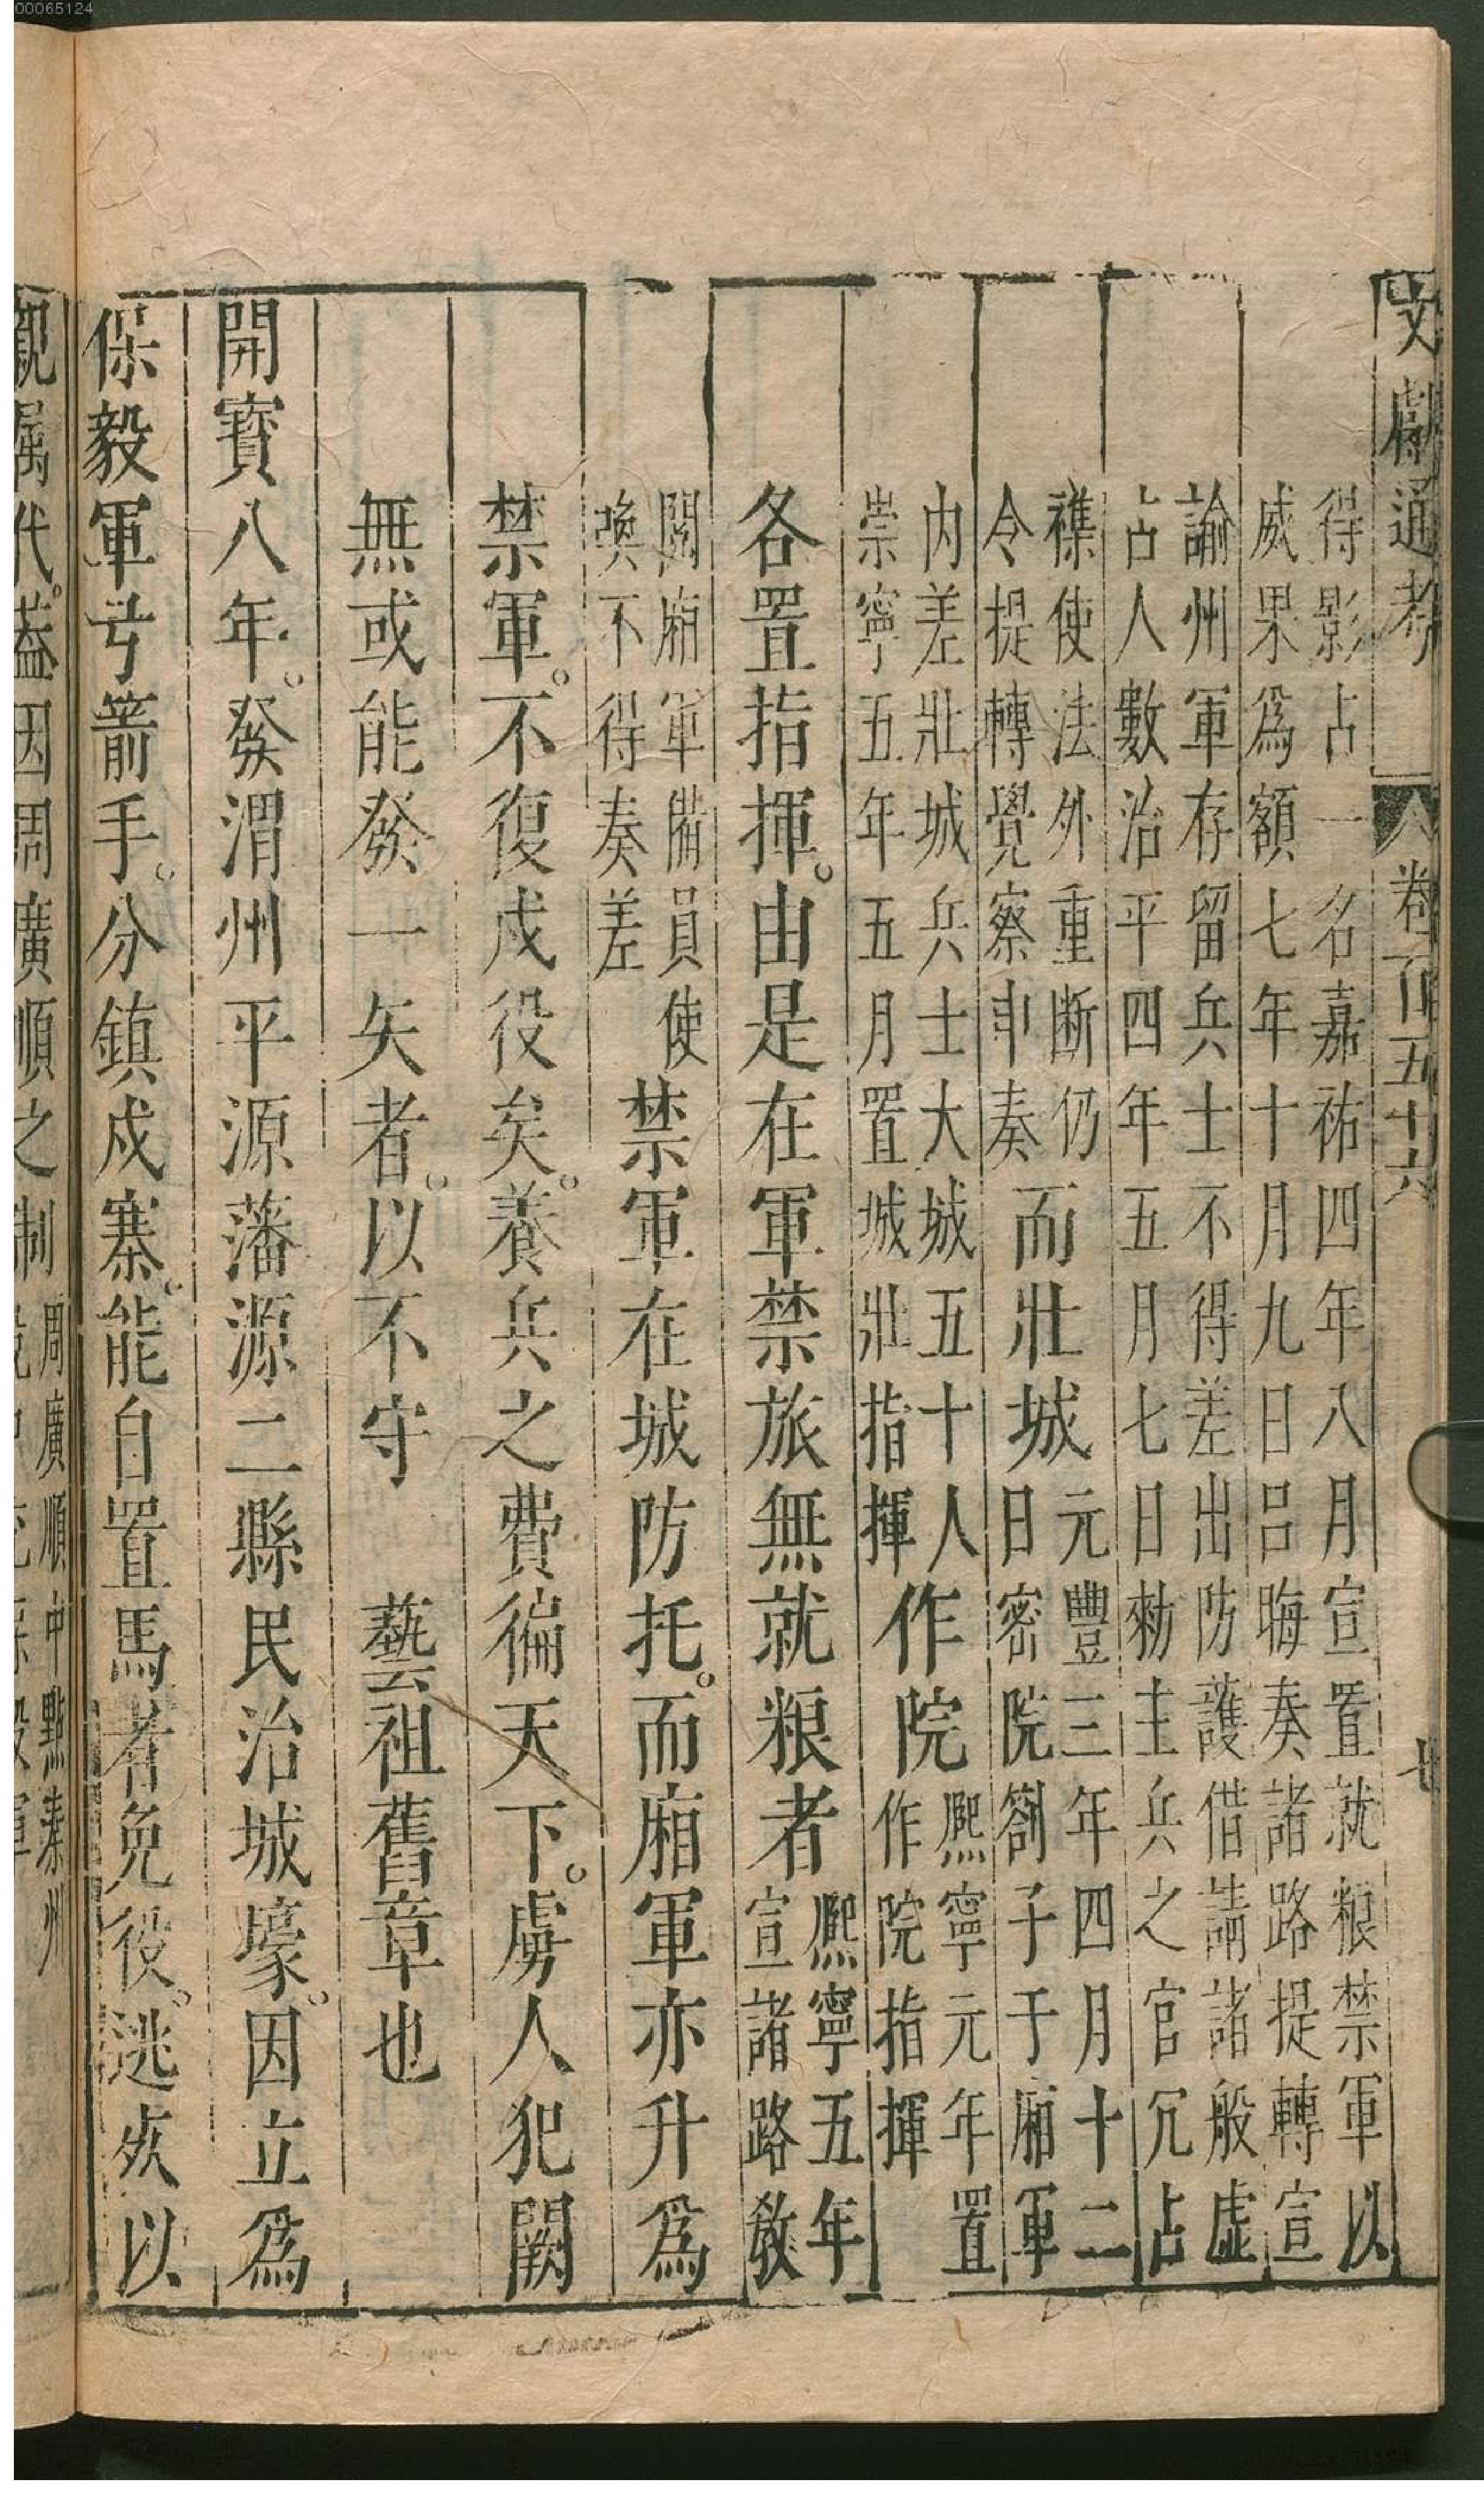 00065124
文獻通考 卷一百五十六 七
得影占一名嘉祐四年八月宣置就粮禁軍以
威果爲額七年十月九日呂晦奏諸路提轉宣
諭州軍存留兵士不得差出防護借請諸般虛
占人數治平四年五月七日勑主兵之官冗占
襍使法外重断仍
令提轉覺察申奏
而壯城
元豐三年四月十二
日密院劄子于廂軍
內差壯城兵士大城五十人
崇寧五年五月置城壯指揮
作院
熈寧元年置
作院指揮
各置指揮。由是在軍禁旅無就粮者
熈寧五年
宣諸路敎
閱廂軍備員使
喚不得奏差
禁軍在城防托。而廂軍亦升爲
禁軍。不復戍役矣。養兵之費徧天下。虜人犯闕
無或能發一矢者。以不守 藝祖舊章也
開寳八年。發渭州平源藩源二縣民治城壕。因立爲
保毅軍弓箭手。分鎮戍寨。能自置馬者免役。逃㱙以
親属代。葢因周廣順之制
周廣順中點秦州